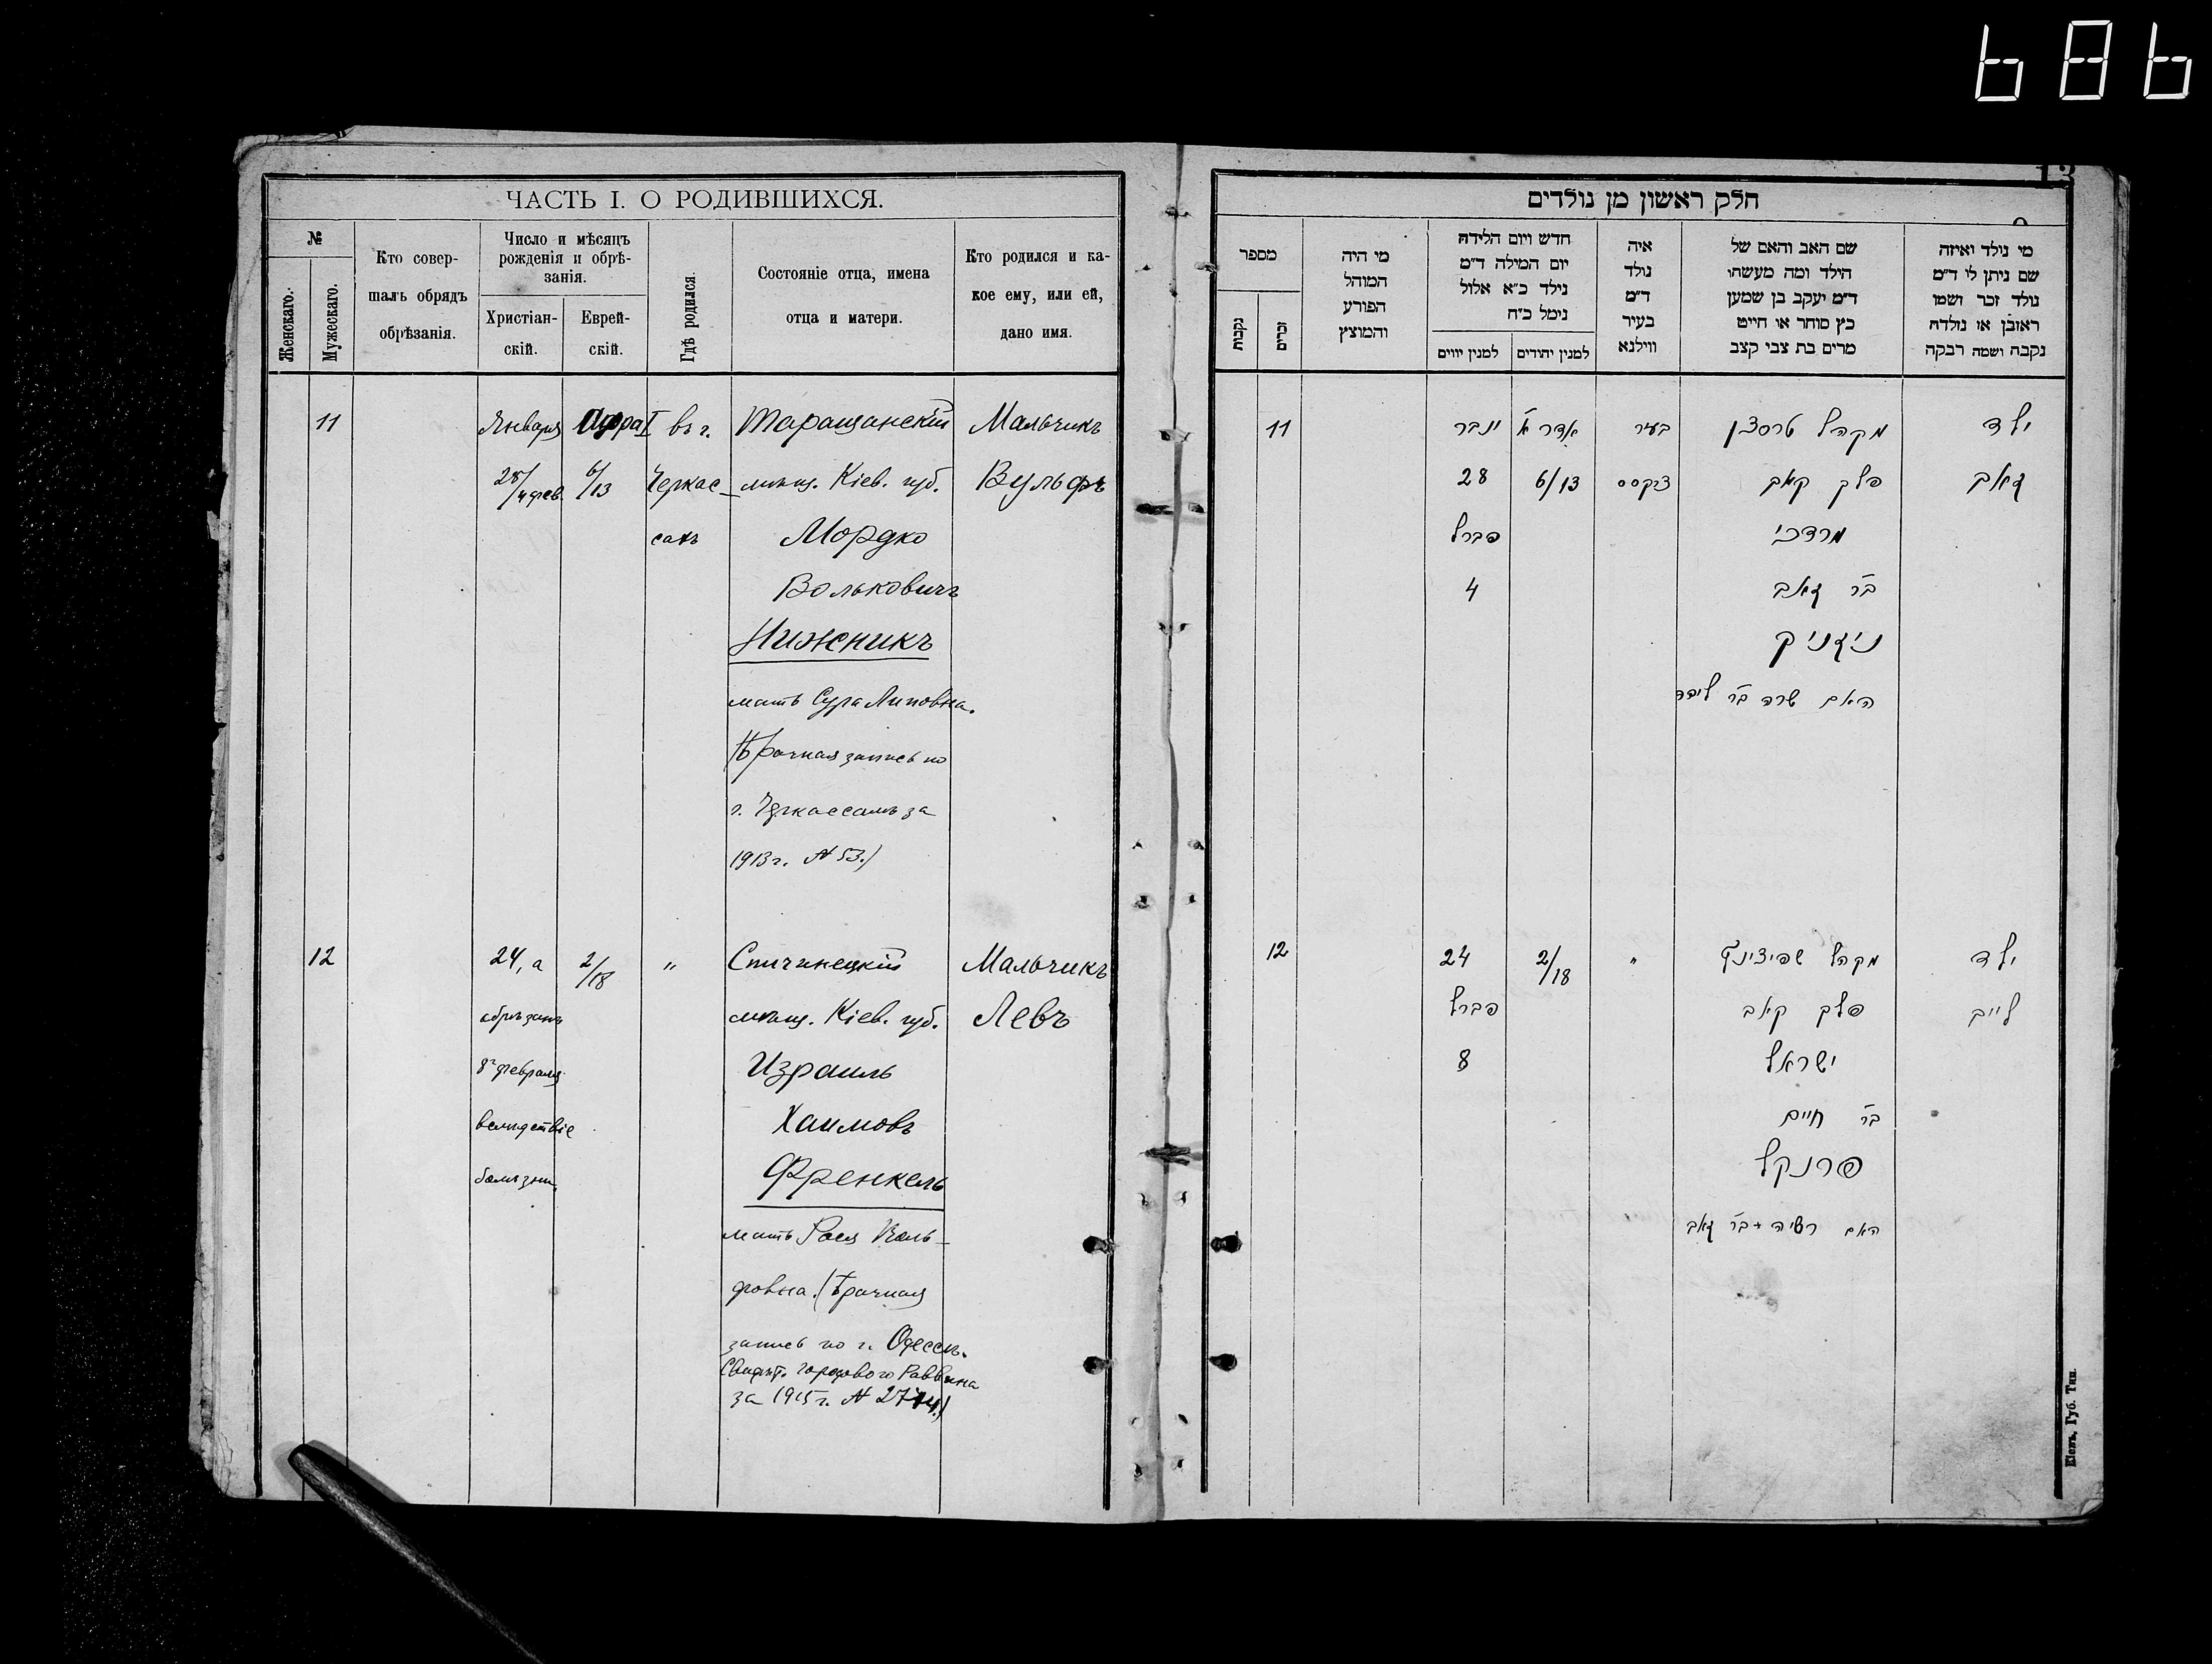 686
13
ЧАСТЬ I. О РОДИВШИХСЯ.
№
Женскаго.
Мужескаго.
Кто совер-
шалъ обрядъ
обрѣзанія.
Число и мѣсяцъ
рожденія и обрѣ-
занія.
Христіан-
скій.
Еврей-
скій.
Гдѣ родился.
Состояніе отца, имена
отца и матери.
Кто родился и ка-
кое ему, или ей,
дано имя.
11
Января
28/4 фев.
Адара I
6/13
въ г.
Черкас-
сахъ
Таращанскій
мѣщ. Кіев. губ.
Мордко
Вольковичъ
Нижникъ
мать Сура Липовна.
(Брачная запись по
г. Черкассамъ за
1913 г. № 53.)
Мальчикъ
Вульфъ
12
24, а
обрѣзанъ
8го февраля
вслѣдствіе
болѣзни.
2/18
"
Спичинецкій
мѣщ. Кіев. губ.
Израиль
Хаимовъ
Френкель
мать Рося Воль-
фовна. (Брачная
запись по г. Одессѣ.
Свидѣт. городового Раввина
за 1915 г. № 2714.)
Мальчикъ
Левъ
חלק ראשון מן נולדים
מספר
נקבות
זכרים
מי היה
המוהל
הפורע
והמוצץ
חדש ויום הלידה
יום המילה ד״מ
נילד כ״א אלול
נימל כ״ח
למנין יווים
למנין יהודים
איה
נולד
ד״מ
בעיר
ווילנא
שם האב והאם של
הילד ומה מעשהו
ד״מ יעקב בן שמעון
כץ סוחר או חייט
מרים בת צבי קצב
מי נולד ואיזה
שם ניתן לו ד״מ
נולד זכר ושמו
ראובן או נולדה
נקבה ושמה רבקה
11
ינבר
28
פברל
4
אדר א
6/13
בעיר
צרקסס
מקהל
פלך קאב
מרדכי
בר זאב
ניזניק
האם שרה בר ליפה
ילד
זאב
12
24
פברל
8
2/18
"
מקהל
פלך קאב
ישראל
בר חיים
פרנקל
האם רשיה בר זאב
ילד
לייב
Кіевъ, Губ. Тип.